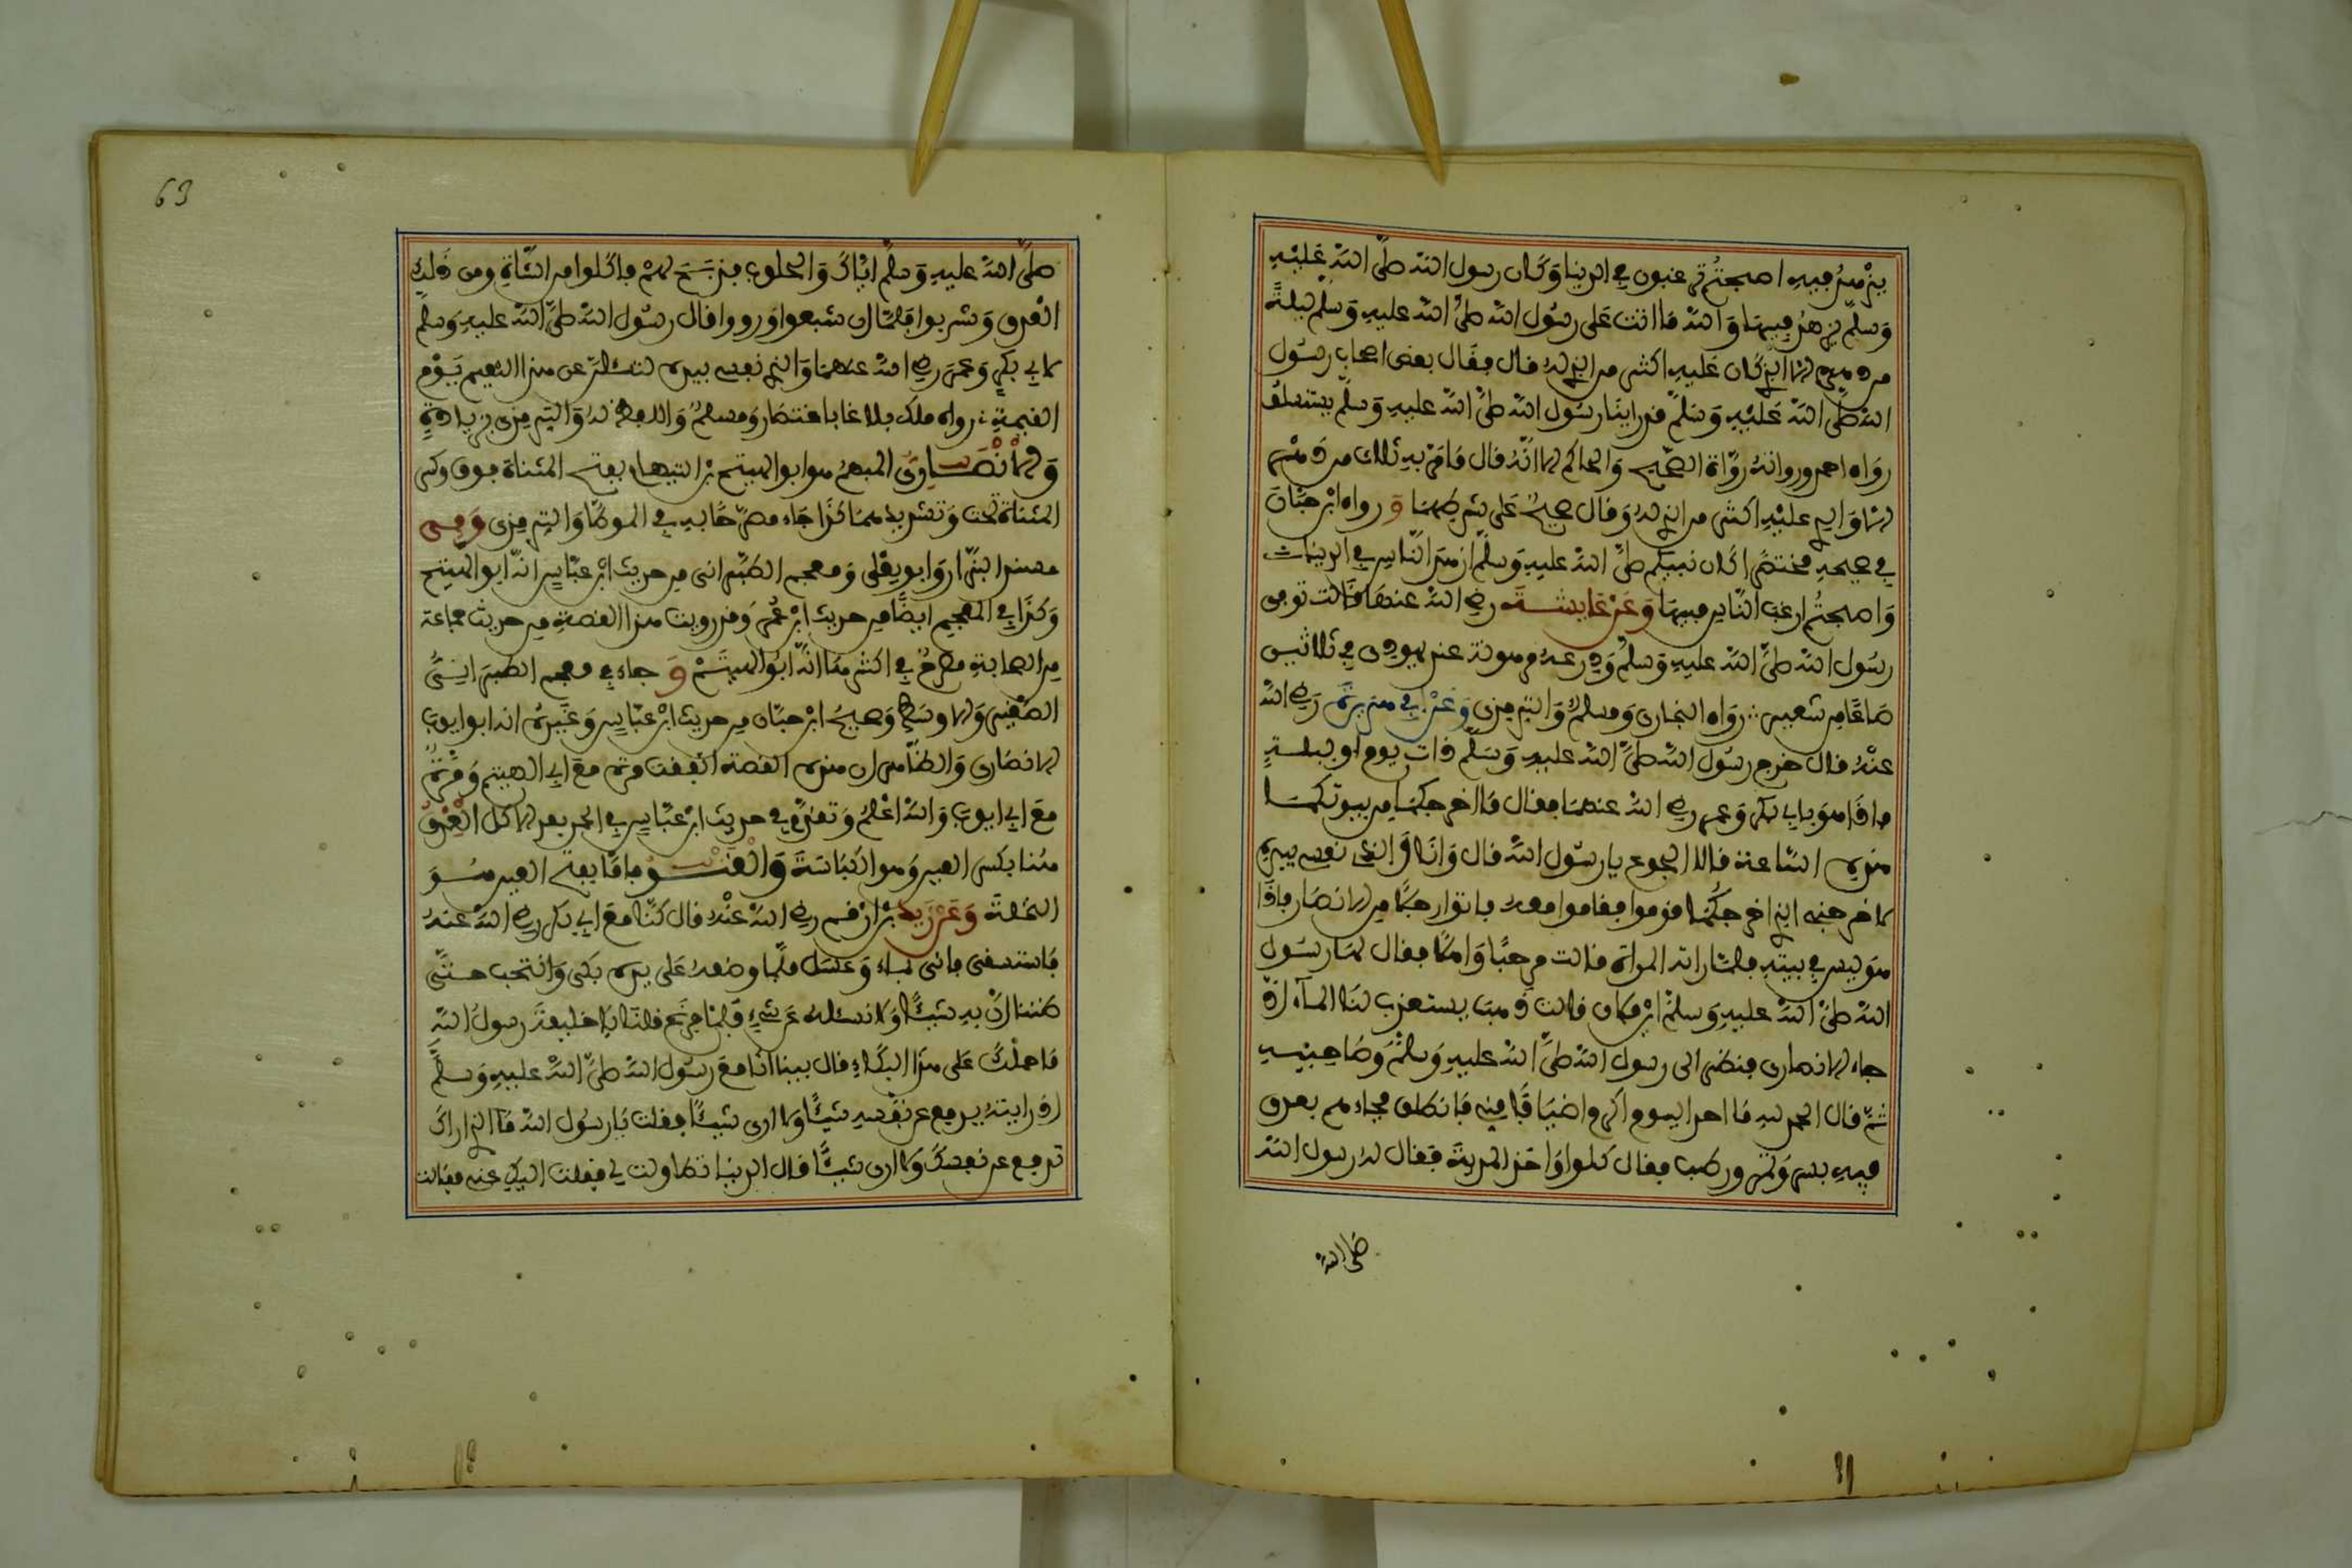 يزهد فيه اصبحتم ترغبون في الدنيا وكان رسول الله صلى الله عليه
وسلم يزهد فيها والله ما اتت على رسول الله صلى الله عليه وسلم ليلة
من دهره الا الذي كان عليه اكثر من الذي له قال فقال بعض اصحاب رسول
الله صلى الله عليه وسلم قد راينا رسول الله صلى الله عليه وسلم يستسلف
رواه احمد ورواته رواة الصحيح والحاكم الا انه قال ما مر به ثلاث من دهره
الا والذي عليه اكثر من الذي له وقال صحيح على شرطهما ورواه ابن حبان
في صحيحه مختصرا كان نبيكم صلى الله عليه وسلم ازهد الناس في الدنيا
واصبحتم ارغب الناس فيها وعن عايشة رضي الله عنها قالت توفي
رسول الله صلى الله عليه وسلم ودرعه مرهونة عند يهودي في ثلاثين
صاعا من شعير رواه البخاري ومسلم والترمذي وعن ابي هريرة رضي الله
عنه قال خرج رسول الله صلى الله عليه وسلم ذات يوم او ليلة
فاذا هو بابي بكر وعمر رضي الله عنهما فقال ما اخرجكما من بيوتكما
هذه الساعة قالا الجوع يا رسول الله قال وانا والذي نفسي بيده
لاخرجني الذي اخرجكما قوموا فقاموا معه فاتوا رجلا من الانصار فاذا
هو ليس في بيته فلما راته المراة قالت مرحبا واهلا فقال لها رسول
الله صلى الله عليه وسلم اين فلان قالت ذهب يستعذب لنا الماء اذ
جاء الانصاري فنظر الى رسول الله صلى الله عليه وسلم وصاحبيه
ثم قال الحمد لله ما احد اليوم اكرم اضيافا مني فانطلق فجاءهم بعذق
فيه بسر وتمر ورطب فقال كلوا واخذ المدية فقال له رسول الله
صلى الله
63
صلى الله عليه وسلم اياك والحلوب فذبح لهم فاكلوا من الشاة ومن ذلك
العذق وشربوا فلما ان شبعوا ورووا قال رسول الله صلى الله عليه وسلم
لابي بكر وعمر رضي الله عنهما والذي نفسي بيده لتسئلن عن هذا النعيم يوم
القيمة رواه ملك بلاغا باختصار ومسلم واللفظ له والترمذي بزيادة
والانصاري المبهم هو ابو الهيثم بن التيهان بفتح المثناة فوق وكسر
المثناة تحت وتشديدها كذا جاء مصرحا به في الموطا والترمذي وفي
مسند البزار وابو يعلى ومعجم الطبراني من حديث ابن عباس انه ابو الهيثم
وكذا في المعجم ايضا من حديث ابن عمر وقد رويت هذه القصة من حديث جماعة
من الصحابة مصرح في اكثرها انه ابو الهيثم وجاء في معجم الطبراني
الصغير والاوسط وصحيح ابن حبان من حديث ابن عباس وغيره انه ابو ايوب
الانصاري والظاهر ان هذه القصة اتفقت مرة مع ابي الهيثم ومرة
مع ابي ايوب والله اعلم وتقدم في حديث ابن عباس في الحمد بعد الاكل العذق
هنا بكسر العين وهو الكباسة والقنو فاما بفتح العين فهو
النخلة وعن زيد بن ارقم رضي الله عنه قال كنا مع ابي بكر رضي الله عنه
فاستسقى فاتى بماء وعسل فلما وضعه على يده بكى وانتحب حتى
ظننا ان به شيئا ولا نسئله عن شيء فلما فرغ قلنا يا خليفة رسول الله
ما حملك على هذا البكاء قال بينا انا مع رسول الله صلى الله عليه وسلم
اذ رايته يدفع عن نفسه شيئا ولا ارى شيئا فقلت يا رسول الله ما الذي اراك
تدفع عن نفسك ولا ارى شيئا قال الدنيا تطاولت لي فقلت اليك عني فقالت